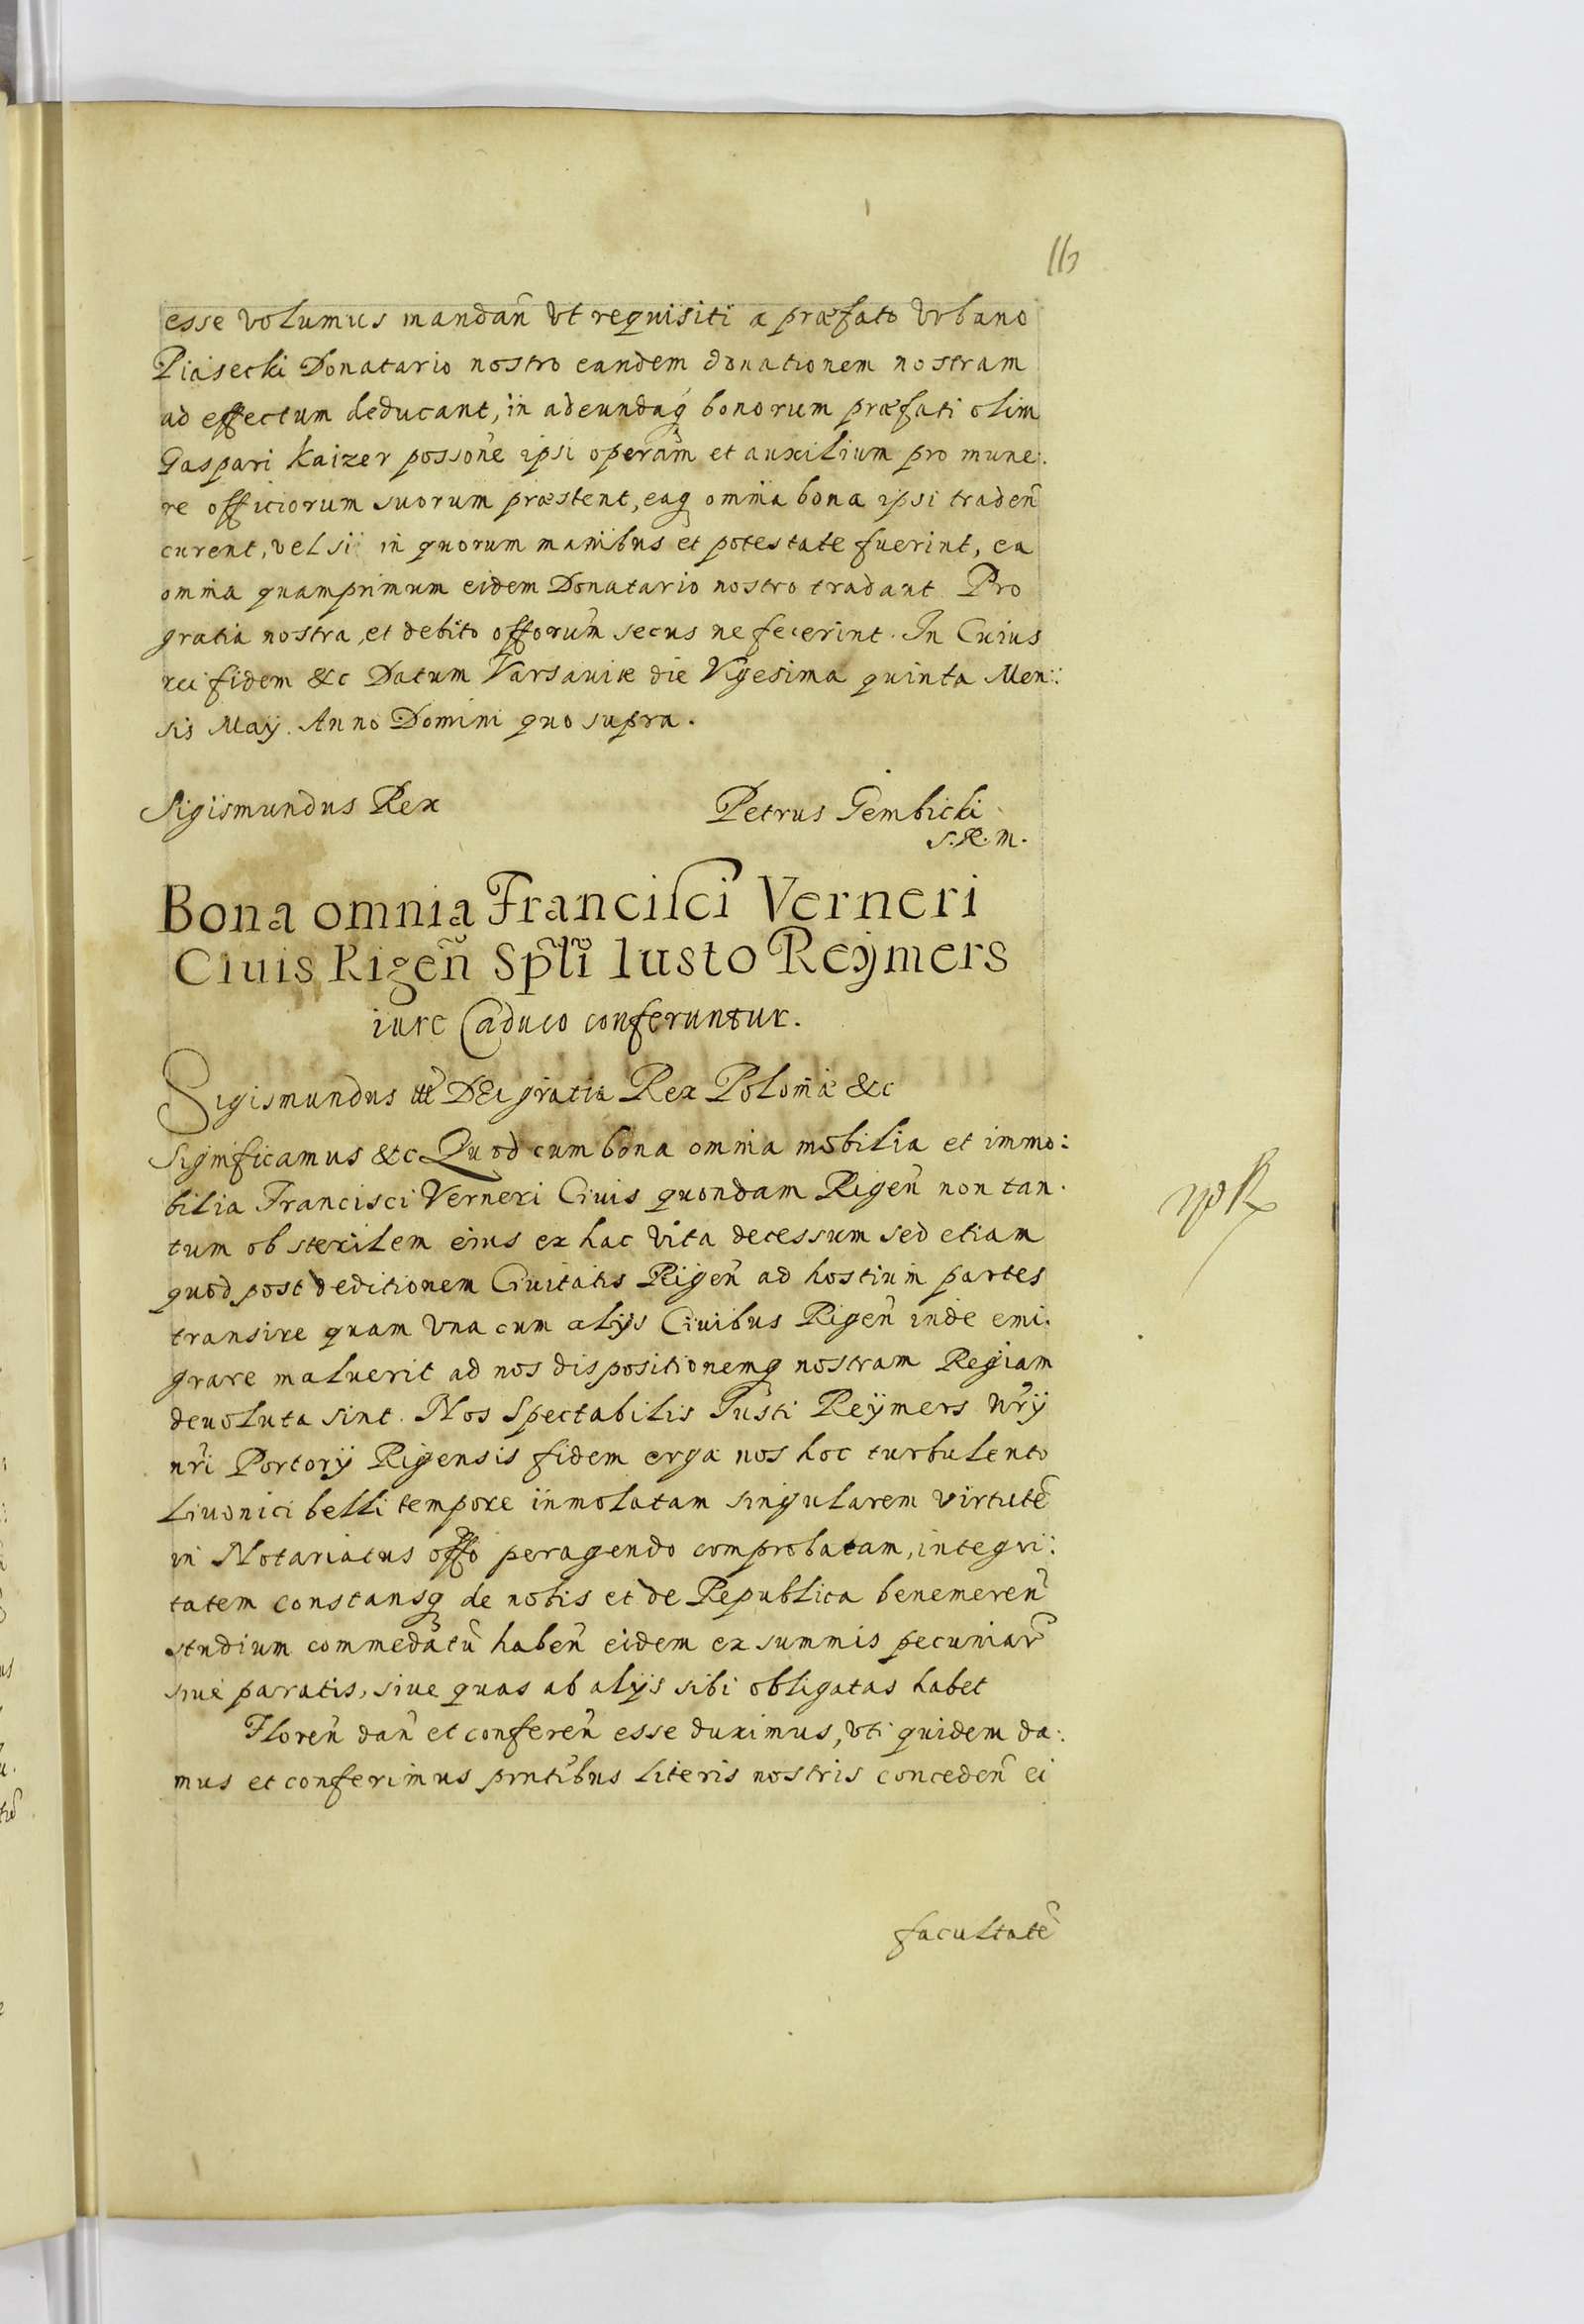 esse volumus mandañ vt requisiti a præfato Vrbano
Piasecki Donatario nostro eandem donationem nostram
ad effectum deducant, in adeundaq bonorum præfati olim
Gaspari Kaizer possone ipsi operam et auxilium pro mune:
re officiorum suorum præstent, eaq omnia bona ipsi tradeñ
curent, vel si in quorum manibus et potestate fuerint, ea
omnia quamprimum eidem Donatario nostro tradant Pro
gratia nostra, et debito offorum secus ne fecerint. In Cuius
rei fidem &c Datum Varsauiæ die Vigesima quinta Men:
sis Maÿ. Anno Domini quo supra.
Sigismundus Rex Petrus Gembicki
S. R. M.
Bona omnia Francisci Verneri
Ciuis Rigeñ Spli Iusto Reÿmers
iure Caduco conferuntur.
Sigismundus III DEi gratia Rex Poloniæ &c
Significamus &c Quod cum bona omnia mobilia et immo:
bilia Francisci Verneri Ciuis quondam Rigeñ non tan.
tum ob sterilem eius ex hac vita decessum sed etiam
quod post deditionem Ciuitatis Rigeñ ad hostium partes
transire quam vna cum alijs Ciuibus Rigeñ inde emi:
grare maluerit ad nos dispositionemq nostram Regiam
deuoluta sint. Nos Spectabilis Iusti Reÿmers Nrÿ
nri Portorÿ Rigensis fidem erga nos hoc turbulento
Liuonici belli tempore inuiolatam singularem virtutẽ
in Notariatus offo peragendo comprobatam, integri:
tatem constansq de nobis et de Republica benemereñ
studium commedatũ habeñ eidem ex summis pecuniar
siue paratis, siue quas ab alijs sibi obligatas habet
Floreñ dañ et confereñ esse duximus, vti quidem da:
mus et conferimus prntibus literis nostris concedeñ ei
facultatẽ